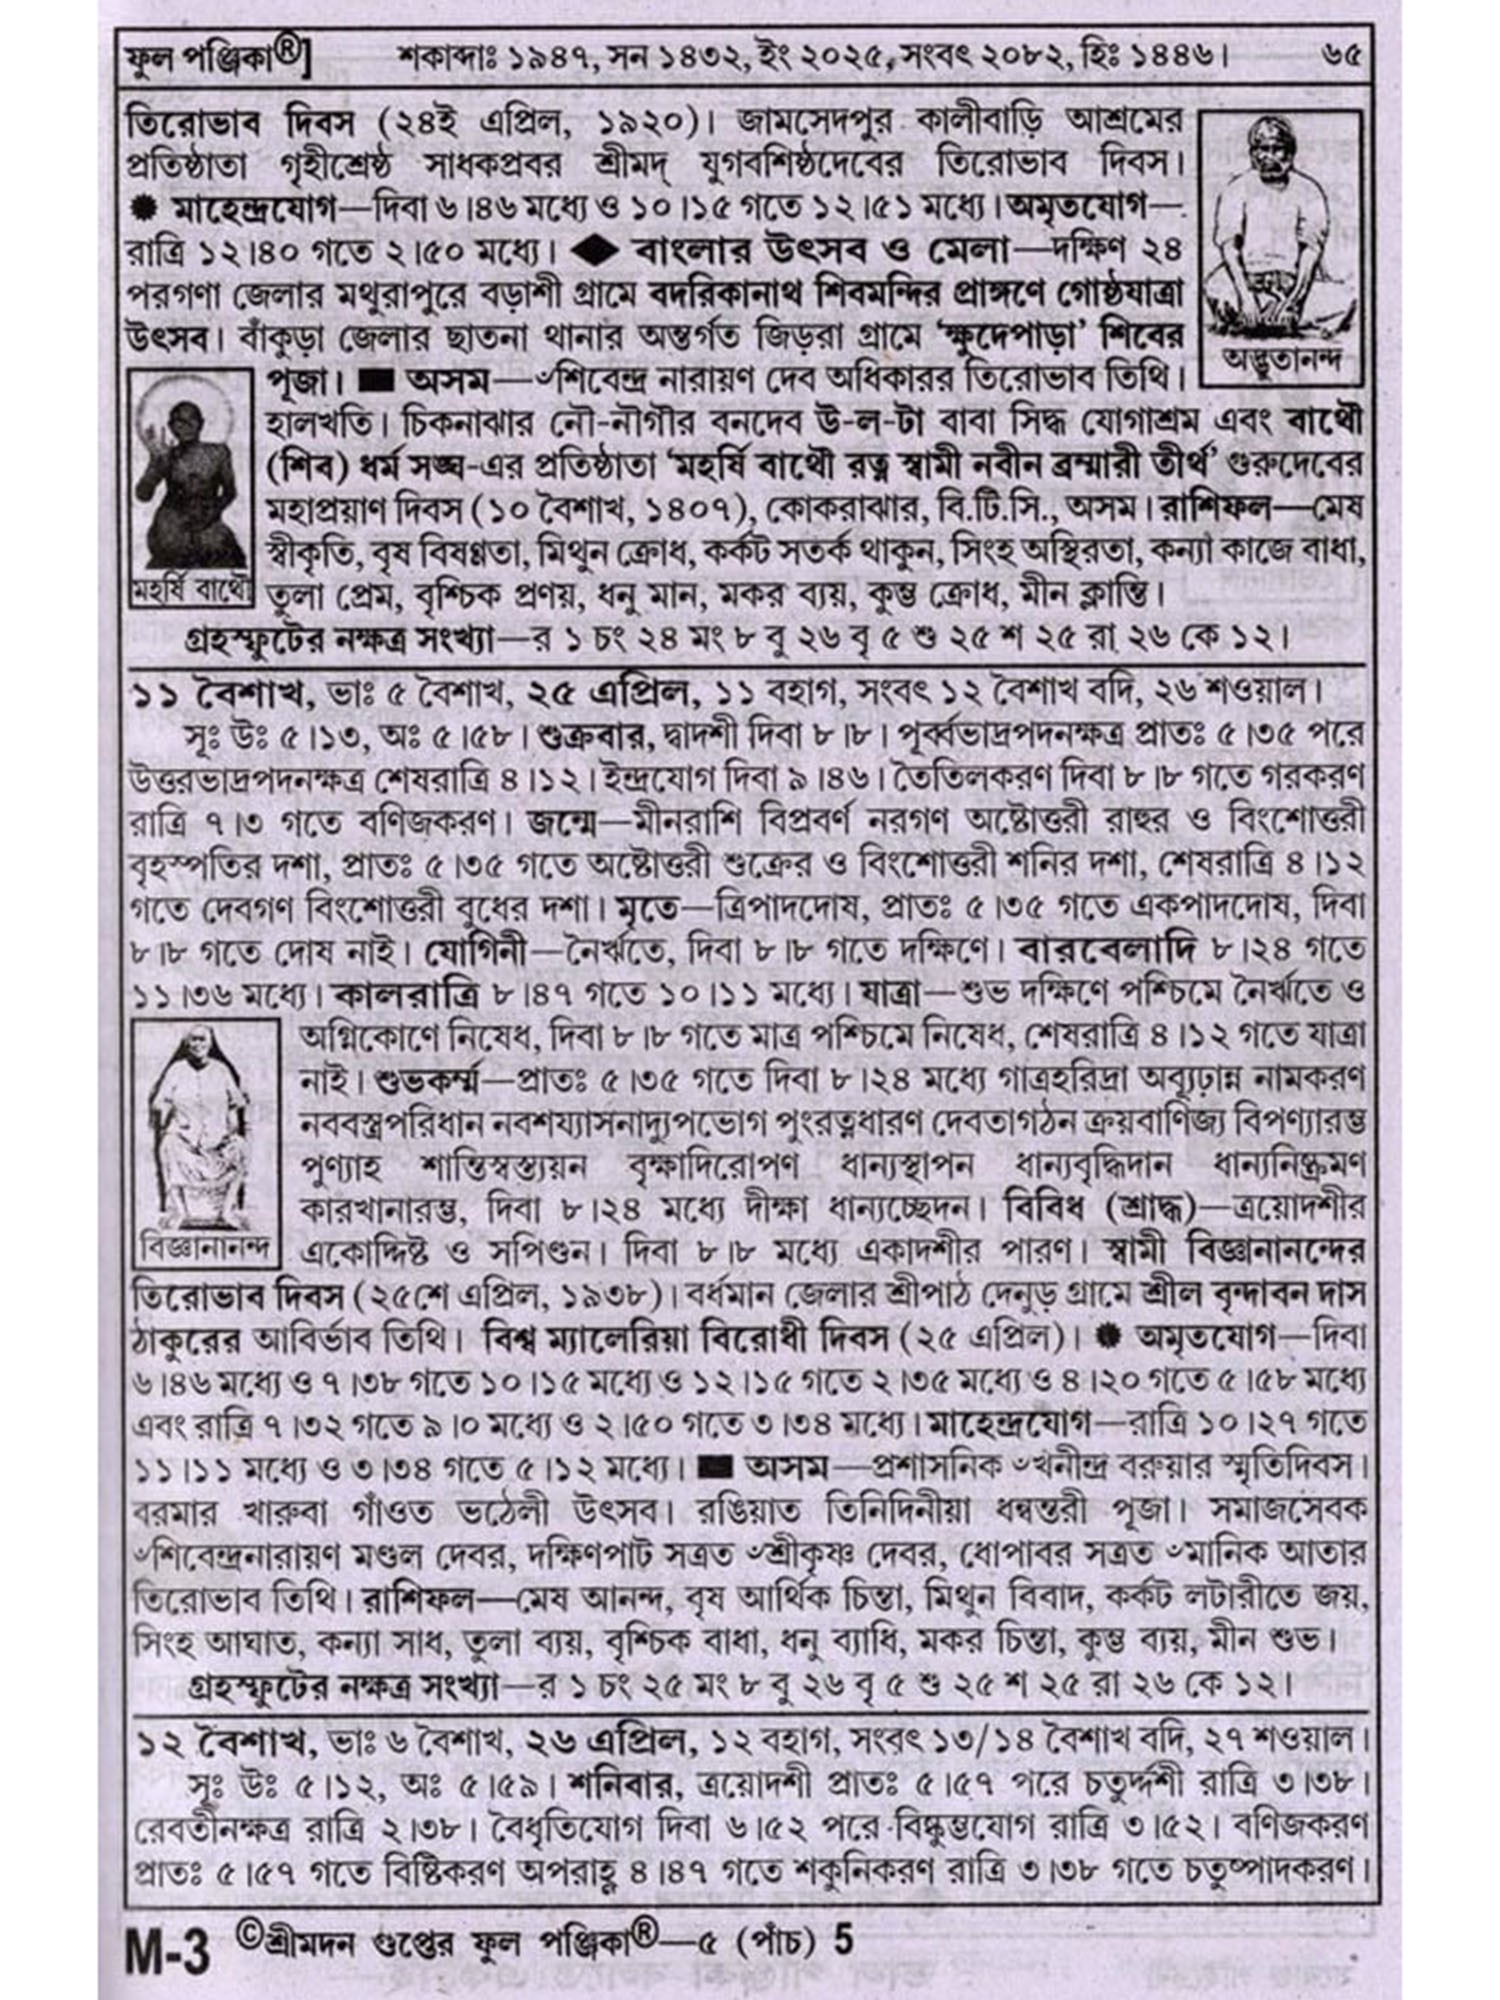 ফুল পঞ্জিকা®] শকাব্দাঃ ১৯৪৭, সন ১৪৩২, ইং ২০২৫, সংবৎ ২০৮২, হিঃ ১৪৪৬। ৬৫
তিরোভাব দিবস (২৪ই এপ্রিল, ১৯২০)। জামসেদপুর কালীবাড়ি আশ্রমের
প্রতিষ্ঠাতা গৃহীশ্রেষ্ঠ সাধকপ্রবর শ্রীমদ্ যুগবশিষ্ঠদেবের তিরোভাব দিবস।
✹ মাহেন্দ্রযোগ—দিবা ৬।৪৬ মধ্যে ও ১০।১৫ গতে ১২।৫১ মধ্যে। অমৃতযোগ—
রাত্রি ১২।৪০ গতে ২।৫০ মধ্যে। ◆ বাংলার উৎসব ও মেলা—দক্ষিণ ২৪
পরগণা জেলার মথুরাপুরে বড়াশী গ্রামে বদরিকানাথ শিবমন্দির প্রাঙ্গণে গোষ্ঠযাত্রা
উৎসব। বাঁকুড়া জেলার ছাতনা থানার অন্তর্গত জিড়রা গ্রামে ‘ক্ষুদেপাড়া’ শিবের
অদ্ভুতানন্দ
পূজা। ■ অসম—ঁশিবেন্দ্র নারায়ণ দেব অধিকারর তিরোভাব তিথি।
হালখতি। চিকনাঝার নৌ-নৗগীর বনদেব উ-ল-টা বাবা সিদ্ধ যোগাশ্রম এবং বাথৌ
(শিব) ধর্ম সঙ্ঘ-এর প্রতিষ্ঠাতা ‘মহর্ষি বাথৌ রত্ন স্বামী নবীন ব্রহ্মারী তীর্থ’ গুরুদেবের
মহাপ্রয়াণ দিবস (১০ বৈশাখ, ১৪০৭), কোকরাঝার, বি.টি.সি., অসম। রাশিফল—মেষ
স্বীকৃতি, বৃষ বিষণ্ণতা, মিথুন ক্রোধ, কর্কট সতর্ক থাকুন, সিংহ অস্থিরতা, কন্যা কাজে বাধা,
মহর্ষি বাথৌ
তুলা প্রেম, বৃশ্চিক প্রণয়, ধনু মান, মকর ব্যয়, কুম্ভ ক্রোধ, মীন ক্লান্তি।
গ্রহস্ফুটের নক্ষত্র সংখ্যা—র ১ চং ২৪ মং ৮ বু ২৬ বৃ ৫ শু ২৫ শ ২৫ রা ২৬ কে ১২।
১১ বৈশাখ, ভাঃ ৫ বৈশাখ, ২৫ এপ্রিল, ১১ বহাগ, সংবৎ ১২ বৈশাখ বদি, ২৬ শওয়াল।
সূঃ উঃ ৫।১৩, অঃ ৫।৫৮। শুক্রবার, দ্বাদশী দিবা ৮।৮। পূর্ব্বভাদ্রপদনক্ষত্র প্রাতঃ ৫।৩৫ পরে
উত্তরভাদ্রপদনক্ষত্র শেষরাত্রি ৪।১২। ইন্দ্রযোগ দিবা ৯।৪৬। তৈতিলকরণ দিবা ৮।৮ গতে গরকরণ
রাত্রি ৭।৩ গতে বণিজকরণ। জন্মে—মীনরাশি বিপ্রবর্ণ নরগণ অষ্টোত্তরী রাহুর ও বিংশোত্তরী
বৃহস্পতির দশা, প্রাতঃ ৫।৩৫ গতে অষ্টোত্তরী শুক্রের ও বিংশোত্তরী শনির দশা, শেষরাত্রি ৪।১২
গতে দেবগণ বিংশোত্তরী বুধের দশা। মৃতে—ত্রিপাদদোষ, প্রাতঃ ৫।৩৫ গতে একপাদদোষ, দিবা
৮।৮ গতে দোষ নাই। যোগিনী—নৈর্ঋতে, দিবা ৮।৮ গতে দক্ষিণে। বারবেলাদি ৮।২৪ গতে
১১।৩৬ মধ্যে। কালরাত্রি ৮।৪৭ গতে ১০।১১ মধ্যে। যাত্রা—শুভ দক্ষিণে পশ্চিমে নৈর্ঋতে ও
অগ্নিকোণে নিষেধ, দিবা ৮।৮ গতে মাত্র পশ্চিমে নিষেধ, শেষরাত্রি ৪।১২ গতে যাত্রা
নাই। শুভকর্ম্ম—প্রাতঃ ৫।৩৫ গতে দিবা ৮।২৪ মধ্যে গাত্রহরিদ্রা অব্যূঢ়ান্ন নামকরণ
নববস্ত্রপরিধান নবশয্যাসনাদ্যুপভোগ পুংরত্নধারণ দেবতাগঠন ক্রয়বাণিজ্য বিপণ্যারম্ভ
পুণ্যাহ শান্তিস্বস্ত্যয়ন বৃক্ষাদিরোপণ ধান্যস্থাপন ধান্যবৃদ্ধিদান ধান্যনিষ্ক্রমণ
কারখানারম্ভ, দিবা ৮।২৪ মধ্যে দীক্ষা ধান্যচ্ছেদন। বিবিধ (শ্রাদ্ধ)—ত্রয়োদশীর
বিজ্ঞানানন্দ
একোদ্দিষ্ট ও সপিণ্ডন। দিবা ৮।৮ মধ্যে একাদশীর পারণ। স্বামী বিজ্ঞানানন্দের
তিরোভাব দিবস (২৫শে এপ্রিল, ১৯৩৮)। বর্ধমান জেলার শ্রীপাঠ দেনুড় গ্রামে শ্রীল বৃন্দাবন দাস
ঠাকুরের আবির্ভাব তিথি। বিশ্ব ম্যালেরিয়া বিরোধী দিবস (২৫ এপ্রিল)। ✹ অমৃতযোগ—দিবা
৬।৪৬ মধ্যে ও ৭।৩৮ গতে ১০।১৫ মধ্যে ও ১২।১৫ গতে ২।৩৫ মধ্যে ও ৪।২০ গতে ৫।৫৮ মধ্যে
এবং রাত্রি ৭।৩২ গতে ৯।০ মধ্যে ও ২।৫০ গতে ৩।৩৪ মধ্যে। মাহেন্দ্রযোগ—রাত্রি ১০।২৭ গতে
১১।১১ মধ্যে ও ৩।৩৪ গতে ৫।১২ মধ্যে। ■ অসম—প্রশাসনিক ঁখনীন্দ্র বরুয়ার স্মৃতিদিবস।
বরমার খারুবা গাঁওত ভঠেলী উৎসব। রঙিয়াত তিনিদিনীয়া ধন্বন্তরী পূজা। সমাজসেবক
ঁশিবেন্দ্রনারায়ণ মণ্ডল দেবর, দক্ষিণপাট সত্রত ঁশ্রীকৃষ্ণ দেবর, ধোপাবর সত্রত ঁমানিক আতার
তিরোভাব তিথি। রাশিফল—মেষ আনন্দ, বৃষ আর্থিক চিন্তা, মিথুন বিবাদ, কর্কট লটারীতে জয়,
সিংহ আঘাত, কন্যা সাধ, তুলা ব্যয়, বৃশ্চিক বাধা, ধনু ব্যাধি, মকর চিন্তা, কুম্ভ ব্যয়, মীন শুভ।
গ্রহস্ফুটের নক্ষত্র সংখ্যা—র ১ চং ২৫ মং ৮ বু ২৬ বৃ ৫ শু ২৫ শ ২৫ রা ২৬ কে ১২।
১২ বৈশাখ, ভাঃ ৬ বৈশাখ, ২৬ এপ্রিল, ১২ বহাগ, সংবৎ ১৩/১৪ বৈশাখ বদি, ২৭ শওয়াল।
সূঃ উঃ ৫।১২, অঃ ৫।৫৯। শনিবার, ত্রয়োদশী প্রাতঃ ৫।৫৭ পরে চতুর্দ্দশী রাত্রি ৩।৩৮।
রেবতীনক্ষত্র রাত্রি ২।৩৮। বৈধৃতিযোগ দিবা ৬।৫২ পরে বিষ্কুম্ভযোগ রাত্রি ৩।৫২। বণিজকরণ
প্রাতঃ ৫।৫৭ গতে বিষ্টিকরণ অপরাহ্ণ ৪।৪৭ গতে শকুনিকরণ রাত্রি ৩।৩৮ গতে চতুষ্পাদকরণ।
M-3 ©শ্রীমদন গুপ্তের ফুল পঞ্জিকা®—৫ (পাঁচ) 5